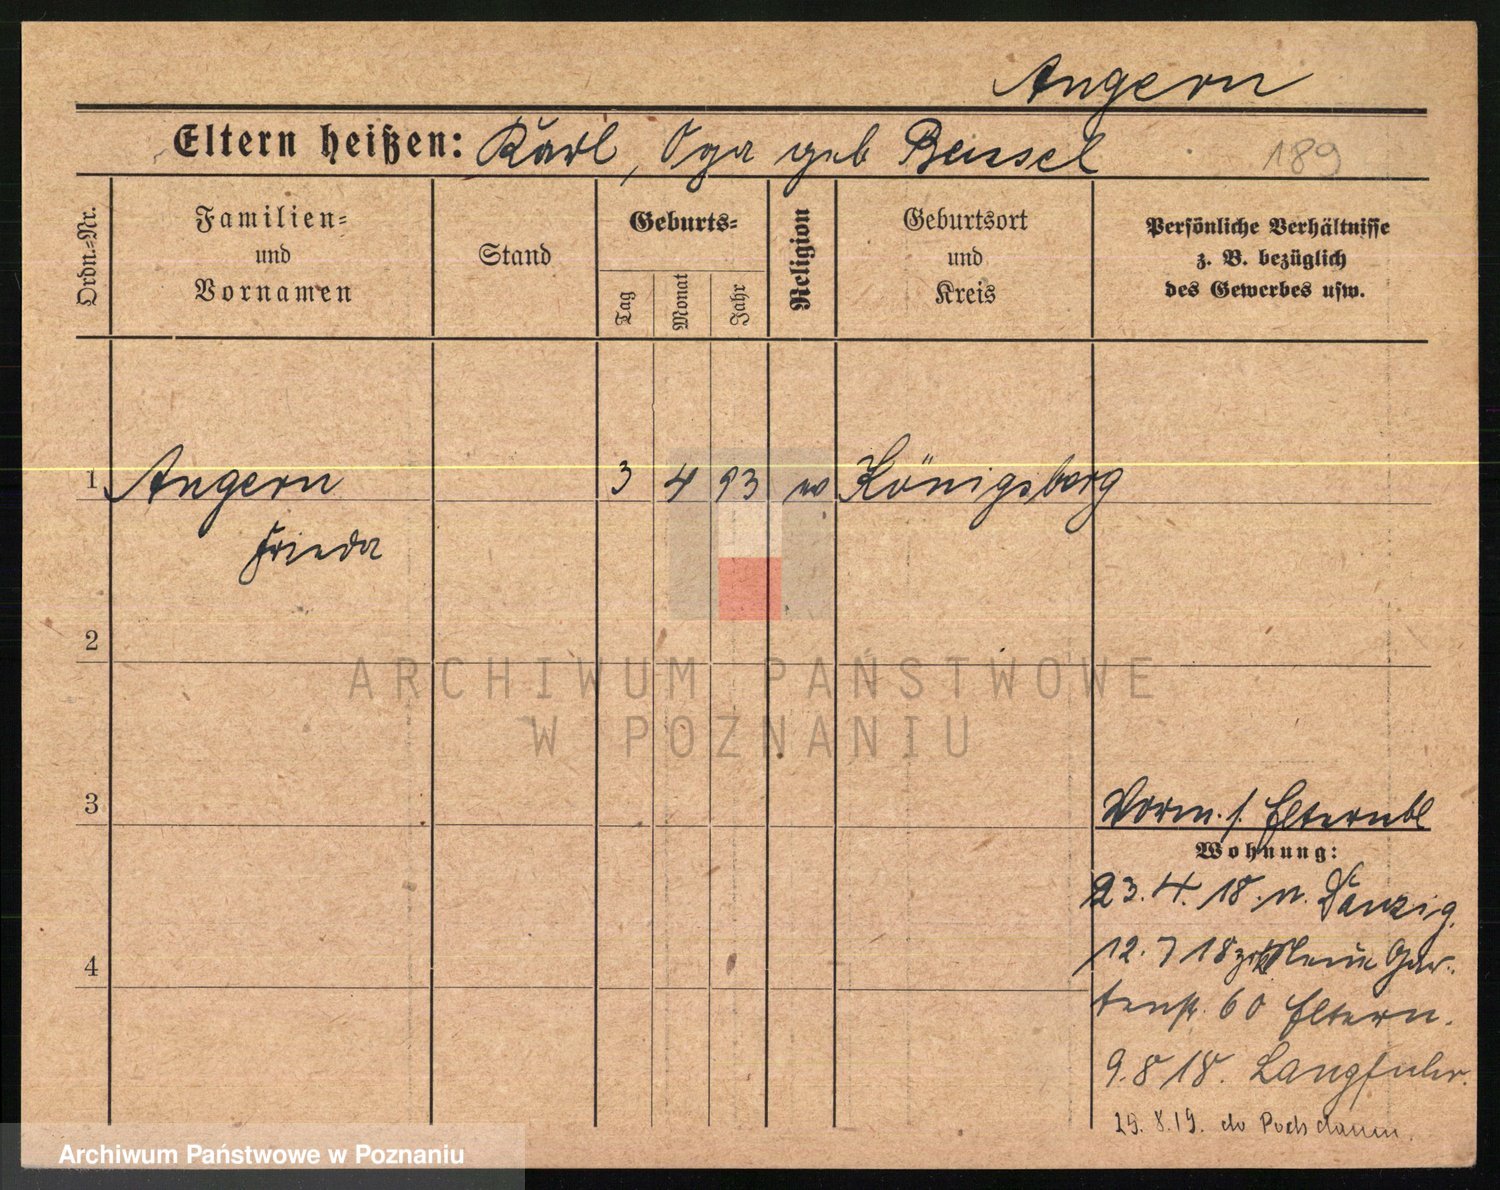 Angern
Eltern heißen: Karl, Oga geb Beussel
189
Ordn.=Nr.
Familien=
und
Vornamen
Stand
Geburts=
Tag
Monat
Jahr
Religion
Geburtsort
und
Kreis
Persönliche Verhältnisse
z. B. bezüglich
des Gewerbes usw.
1 Angern 3 4 93 Königsberg
Frieda
2
3
Vorm. s. Elternbl
Wohnung:
23.4.18. n. Danzig.
12.7 18 Gar-
tenstr. 60 Eltern.
4
9.8 18. Langfuhr.
29.8.19. do Podsdamm.
ARCHIWUM PAŃSTWOWE
W POZNANIU
Archiwum Państwowe w Poznaniu